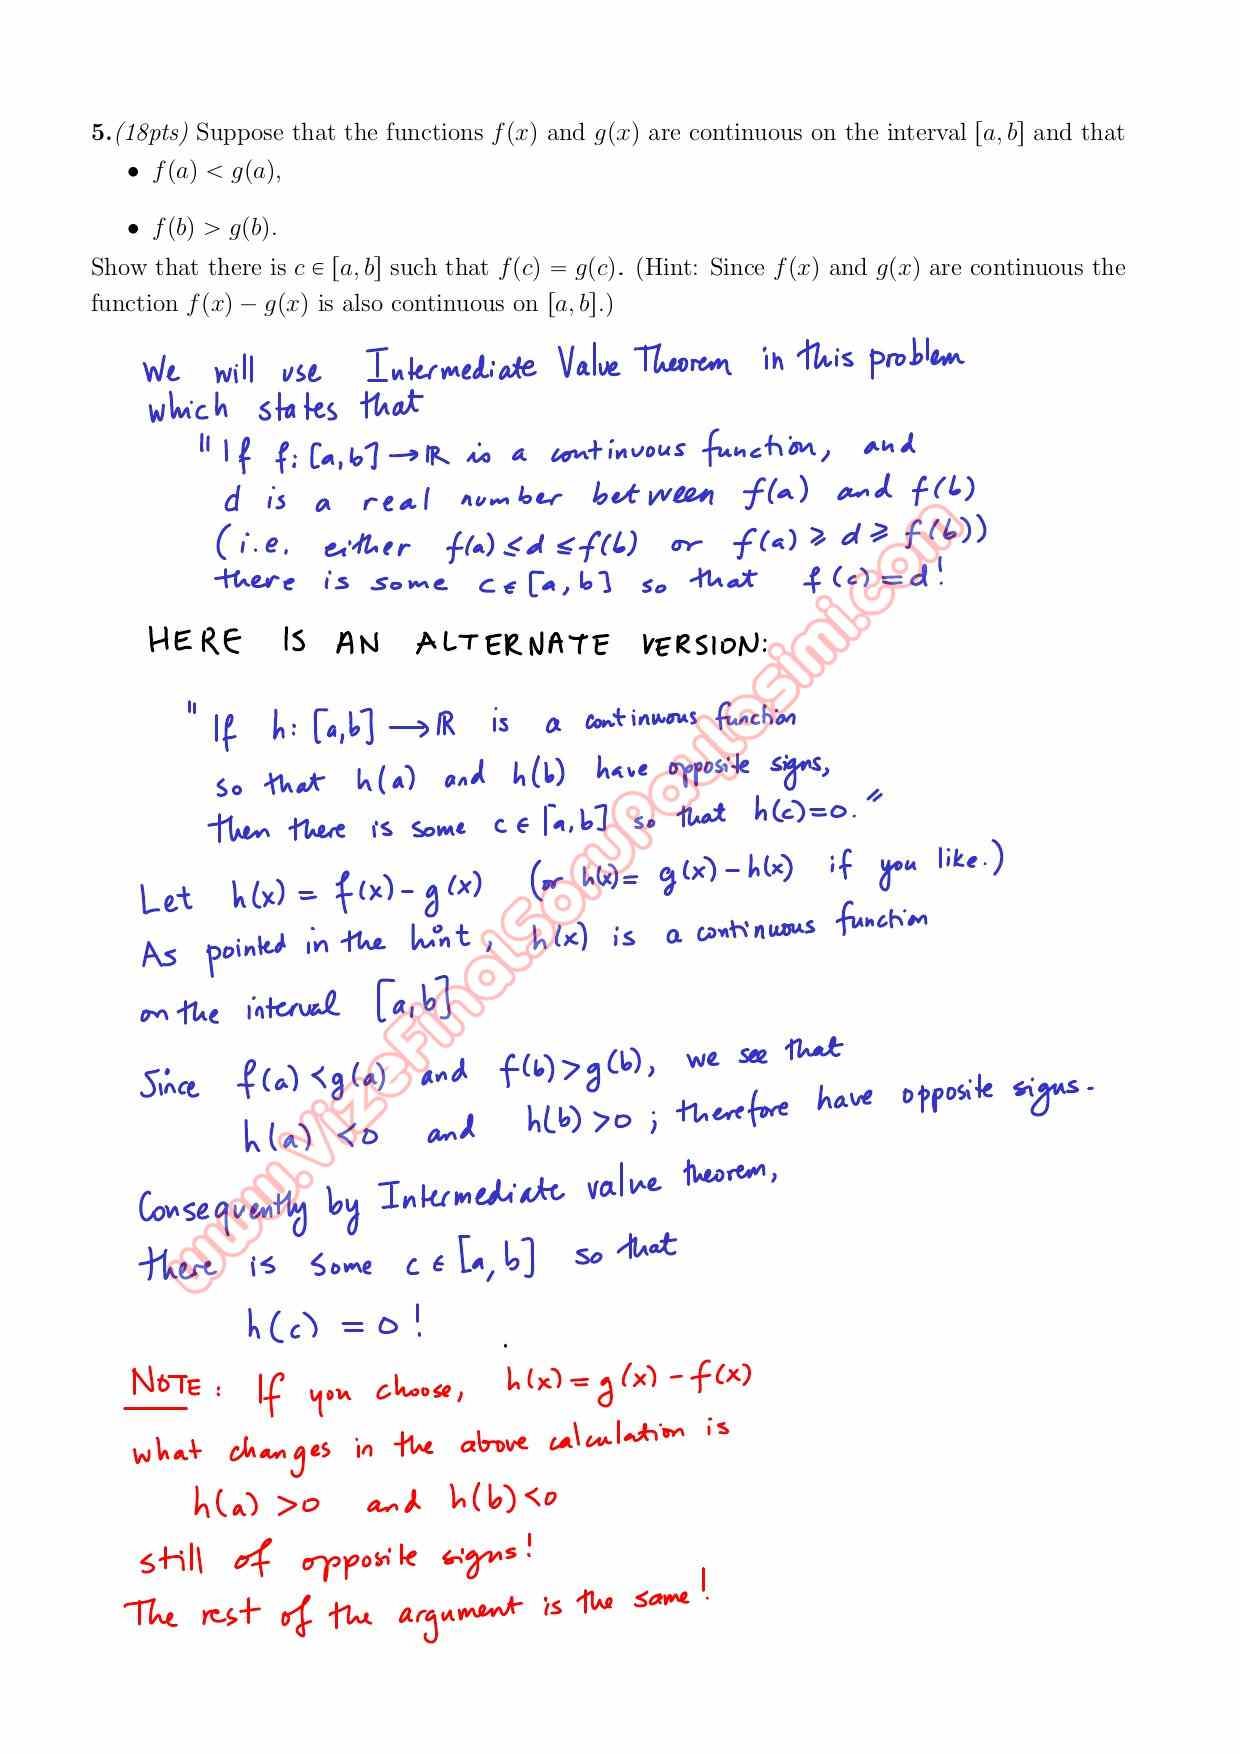 5.(18pts) Suppose that the functions f(x) and g(x) are continuous on the interval [a, b] and that
• f(a) < g(a),
• f(b) > g(b).
Show that there is c ∈ [a, b] such that f(c) = g(c). (Hint: Since f(x) and g(x) are continuous the
function f(x) − g(x) is also continuous on [a, b].)
We will use Intermediate Value Theorem in this problem
which states that
"If f: [a,b] → ℝ is a continuous function, and
d is a real number between f(a) and f(b)
(i.e. either f(a) ≤ d ≤ f(b) or f(a) ⩾ d ⩾ f(b))
there is some c ∈ [a, b] so that f(c) = d!
HERE IS AN ALTERNATE VERSION:
"If h: [a,b] → ℝ is a continuous function
so that h(a) and h(b) have opposite signs,
then there is some c ∈ [a,b] so that h(c)=0."
Let h(x) = f(x) - g(x) (or h(x) = g(x) - h(x) if you like.)
As pointed in the hint, h(x) is a continuous function
on the interval [a,b]
Since f(a) < g(a) and f(b) > g(b), we see that
h(a) < 0 and h(b) > 0 ; therefore have opposite signs.
Consequently by Intermediate value theorem,
there is some c ∈ [a, b] so that
h(c) = 0 !
NOTE: If you choose, h(x) = g(x) - f(x)
what changes in the above calculation is
h(a) > 0 and h(b) < 0
still of opposite signs!
The rest of the argument is the same!
www.VizeFinalSoruPaylasimi.com